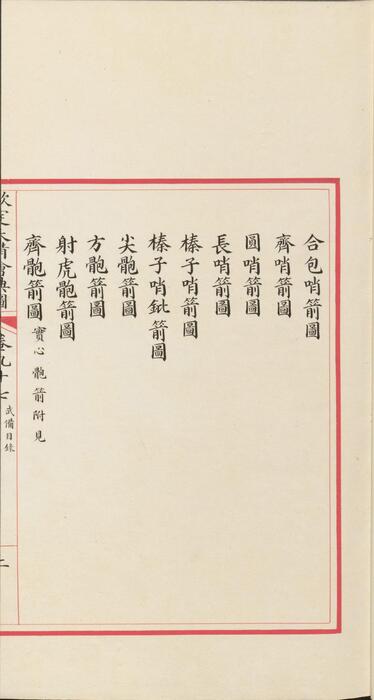 合包哨箭圖
齊哨箭圖
圓哨箭圖
長哨箭圖
榛子哨箭圖
榛子哨鈚箭圖
尖骲箭圖
方骲箭圖
射虎骲箭圖
齊骲箭圖實心骲箭附見
欽定大清會典圖 卷九十七武備目錄 二